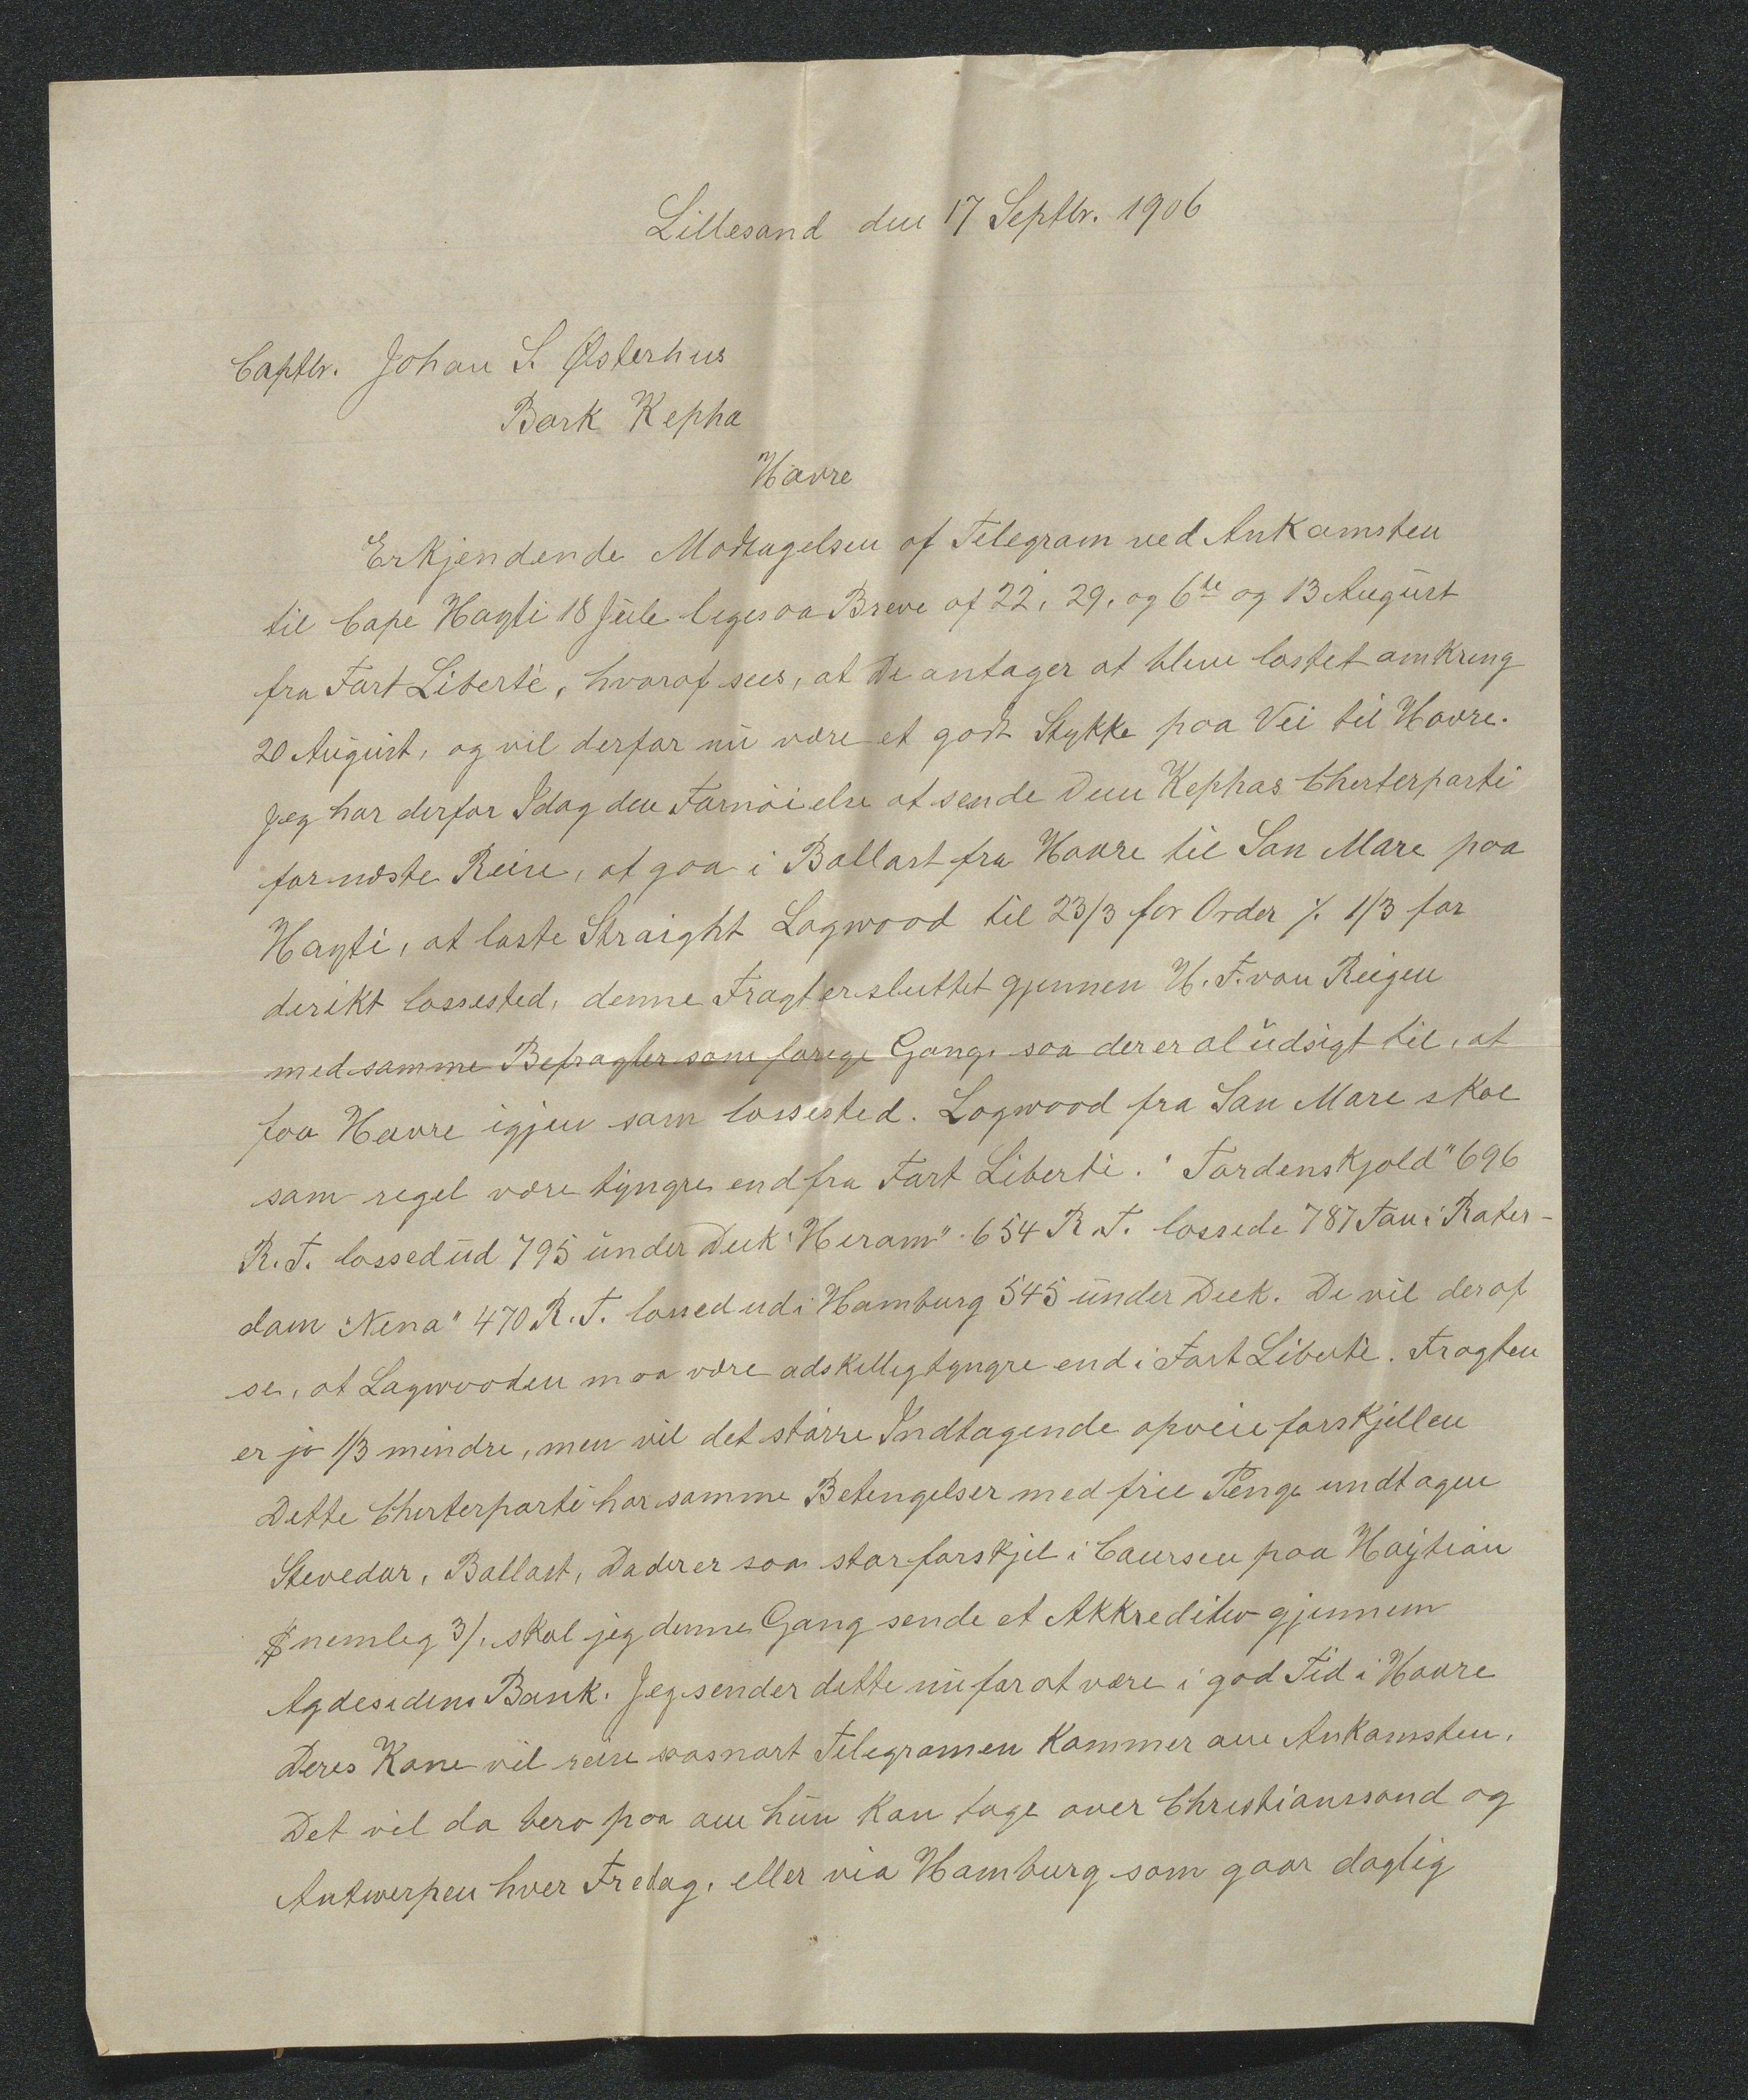 Lillesand den 17 Septbr. 1906
Captbr. Johan S. Østerhus
Bark Kepha
Havre
Erkjendende Modtagelsen af Telegram ved Ankomsten
til Cape Hayti 18 Juli ligesaa Breve af 22, 29, og 6te og 13 August
fra Fort Liberté, hvoraf sees, at De antager at blive lastet omkring
20 August, og vil derfor nu være et godt Stykke paa Vei til Havre.
Jeg har derfor Idag den Fornøielse at sende Dem Kephas Cherterparti
for næste Reise, at gaa i Ballast fra Havre til San Marc paa
Hayti, at laste Straight Logwood til 23/3 for Order ⁒ 1/3 for
direkt lossested, denne Fragt er sluttet gjennem H. F. von Reigen
med samme Befragter som forige Gang, saa der er al udsigt til, at
faa Havre igjen som lossested. Logwood fra San Marc skal
som regel være tyngre end fra Fort Liberté. "Tordenskjold" 696
R.T. lossed ud 795 under Dæk "Hiram" 654 R.T. lossede 787 Ton i Roter-
dam "Nena" 470 R.T. lossed ud i Hamburg 545 under Dæk. De vil deraf
se, at Logwooden maa være adskillig tyngre end i Fort Liberté. Fragten
er jo 1/3 mindre, men vil det større Indtagende opveie forskjellen
Dette Cherterparti har samme Betingelser med frie Penge undtagen
Stevedor, Ballast, Da der er saa stor forskjel i Coursen paa Haytian
$ nemlig 3/. skal jeg denne Gang sende et Akkreditiv gjennem
Agdesidens Bank. Jeg sender dette nu for at være i god Tid i Havre
Deres Kone vil reise saasnart Telegramen kommer om Ankomsten.
Det vil da bero paa om hun kan tage over Christianssand og
Antwerpen hver Fredag, eller via Hamburg som gaar daglig